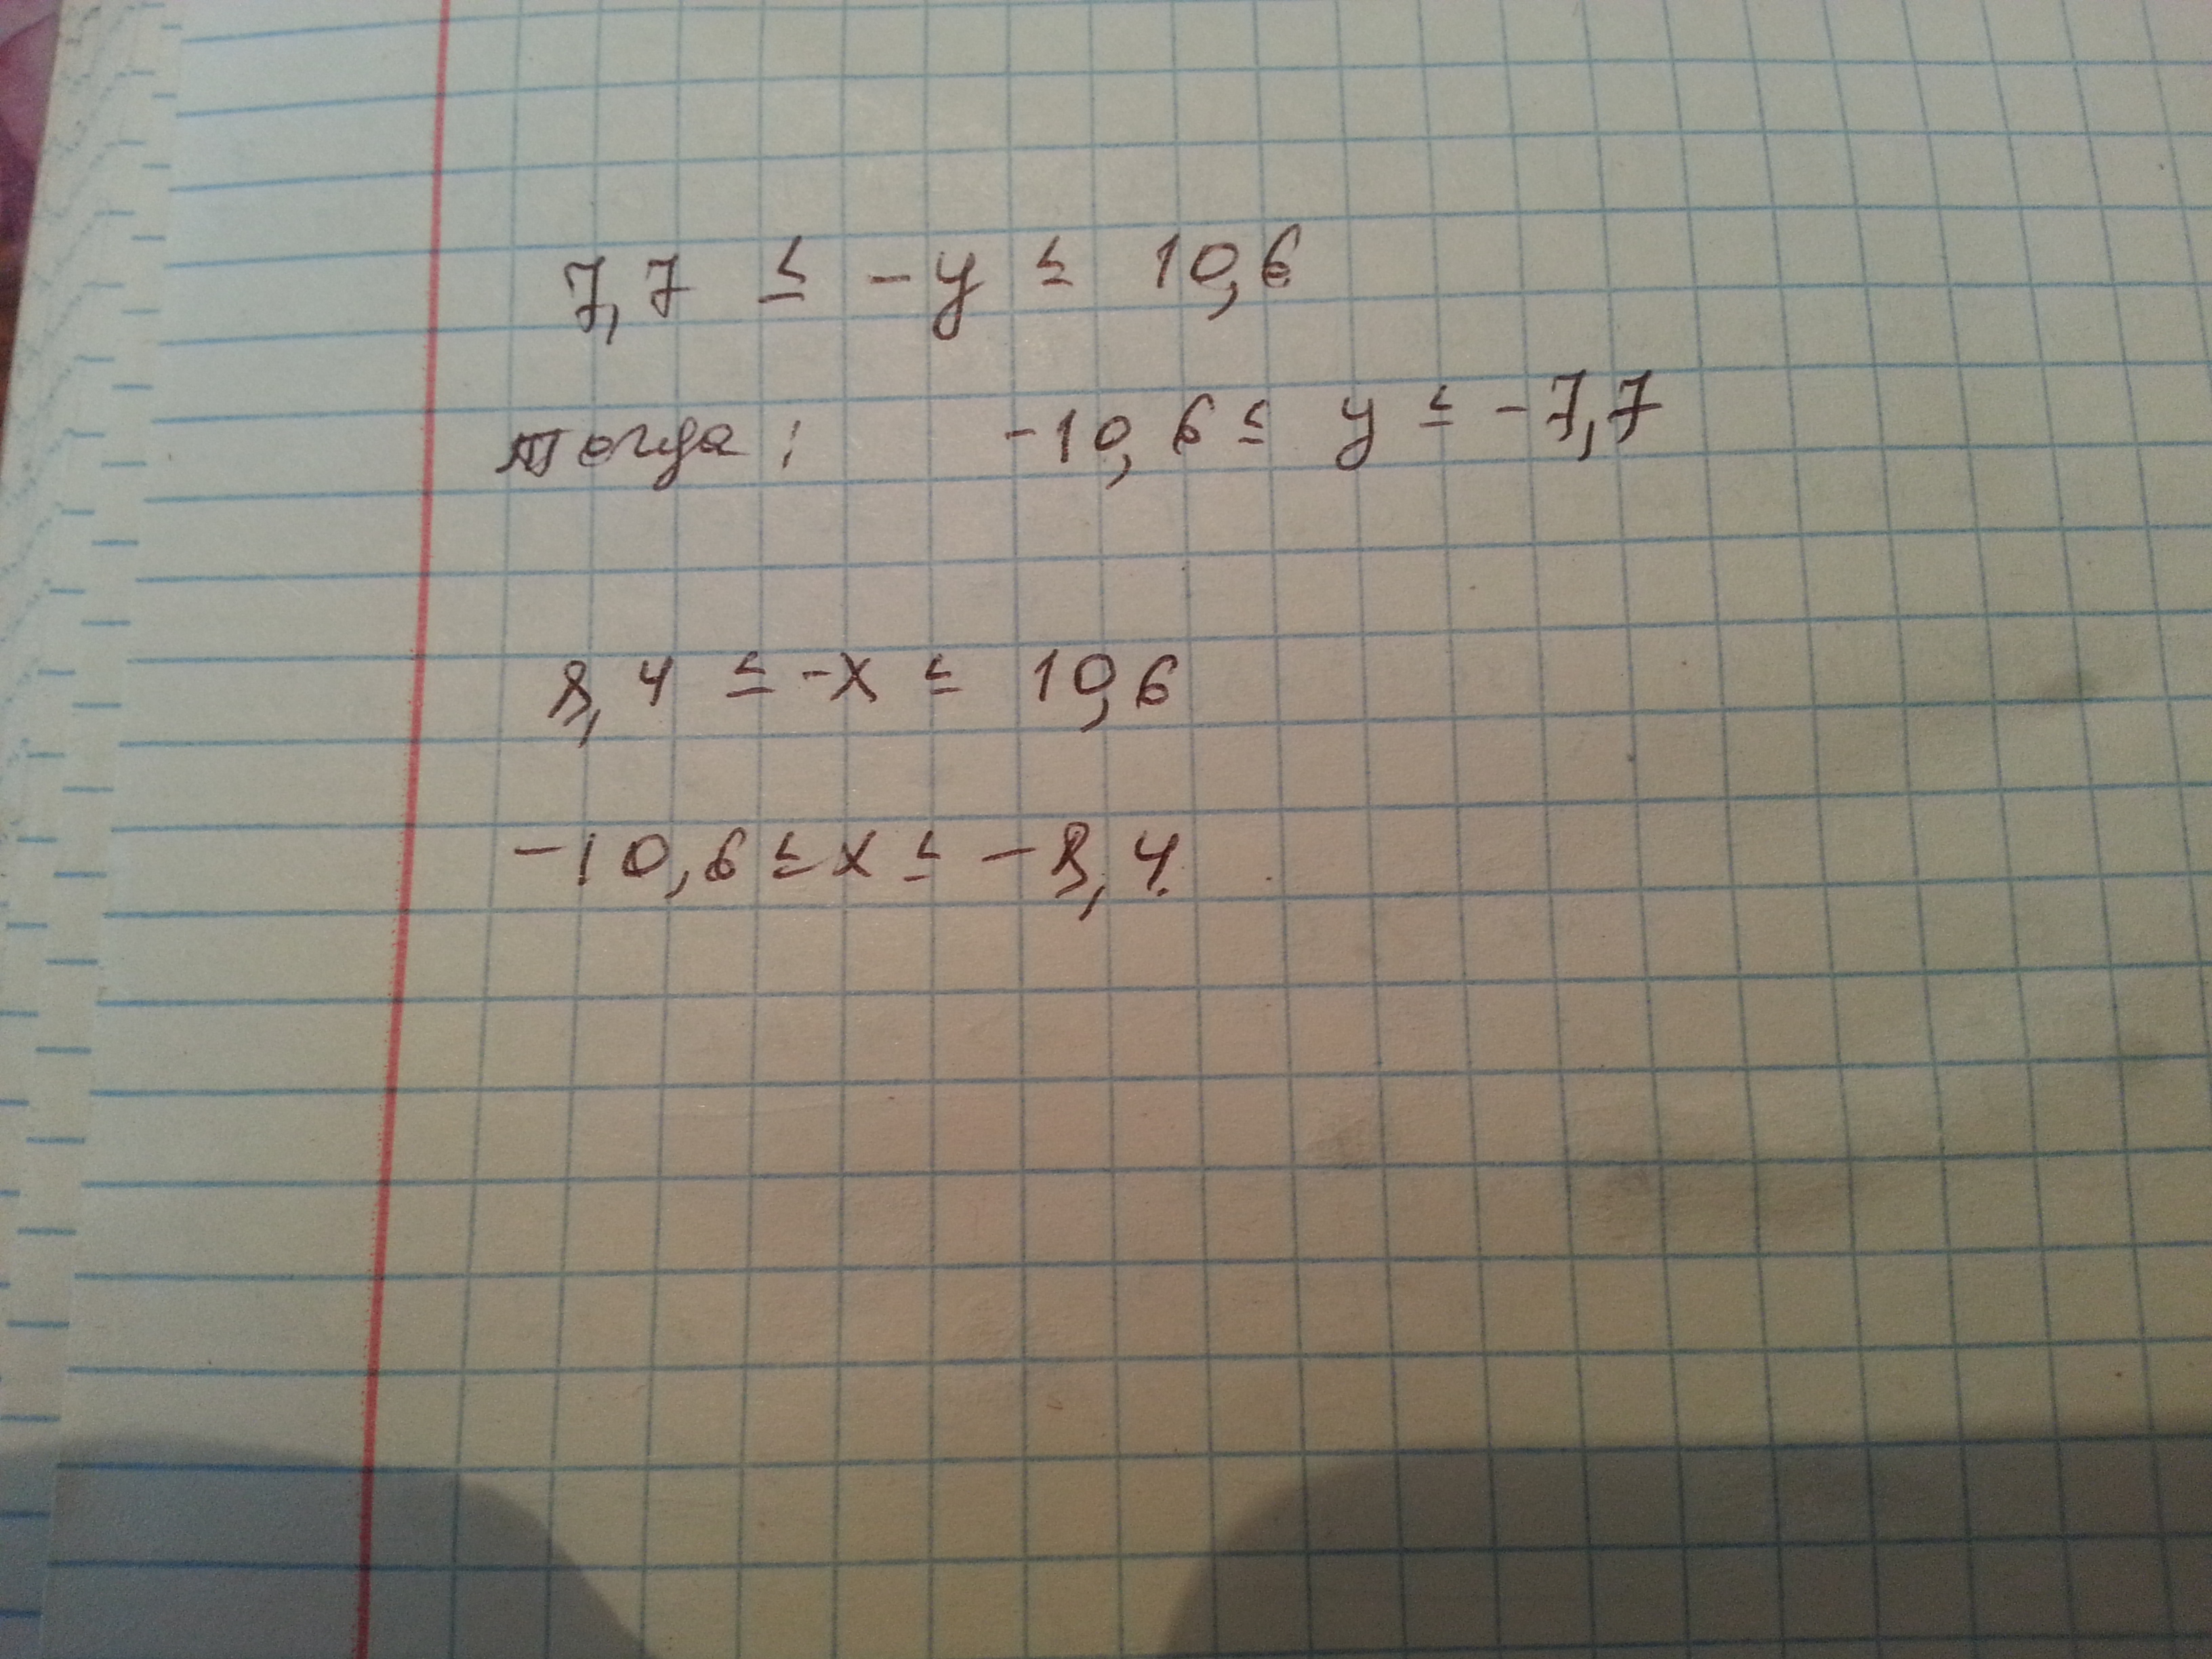 7,7 ≤ -y ≤ 10,6
тогда: -10,6 ≤ y ≤ -7,7
8,4 ≤ -x ≤ 10,6
-10,6 ≤ x ≤ -8,4.